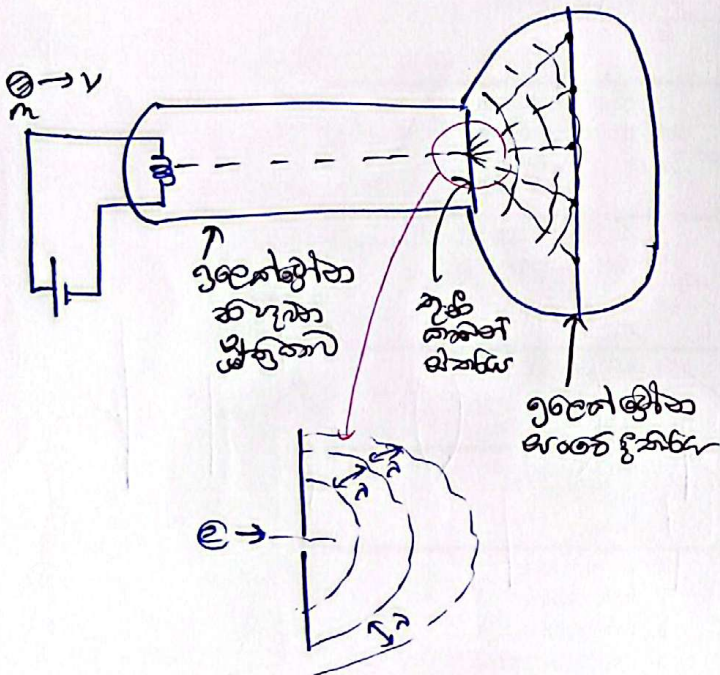 → v
m
ඉලෙක්ට්‍රෝන
නිපදවන
සූත්‍රිකාව
තුනී
කාබන්
ස්තරය
ඉලෙක්ට්‍රෝන
සංවේදී තිරය
λ
λ
e →
λ